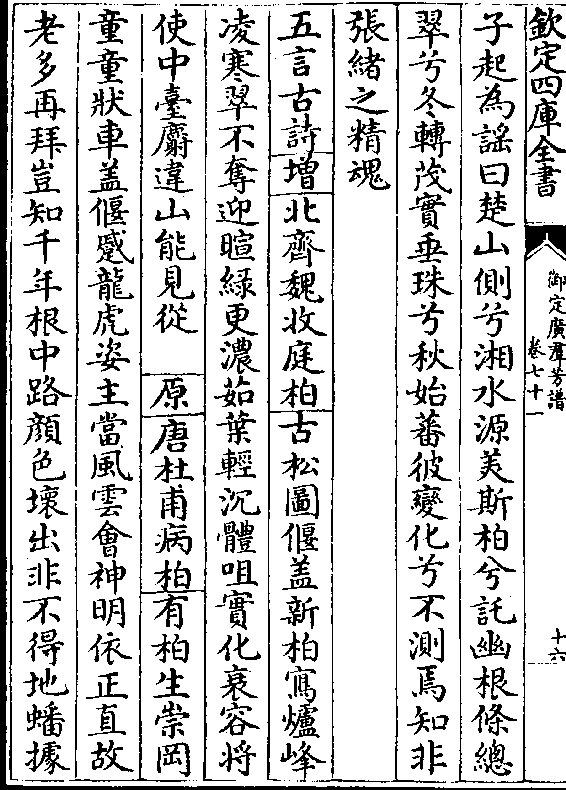 欽定四庫全書
御定廣羣芳譜
卷七十一
十六
子起為謡曰楚山側兮湘水源美斯柏兮託幽根條總
翠兮冬轉茂實垂珠兮秋始蕃彼變化兮不測焉知非
張緒之精魂
五言古詩增北齊魏收庭柏古松圖偃盖新柏寫爐峰
凌寒翠不奪迎暄緑更濃茹葉輕沉體咀實化衰容將
使中臺麝違山能見從　原唐杜甫病柏有柏生崇岡
童童狀車盖偃蹙龍虎姿主當風雲會神明依正直故
老多再拜豈知千年根中路顔色壞出非不得地蟠據